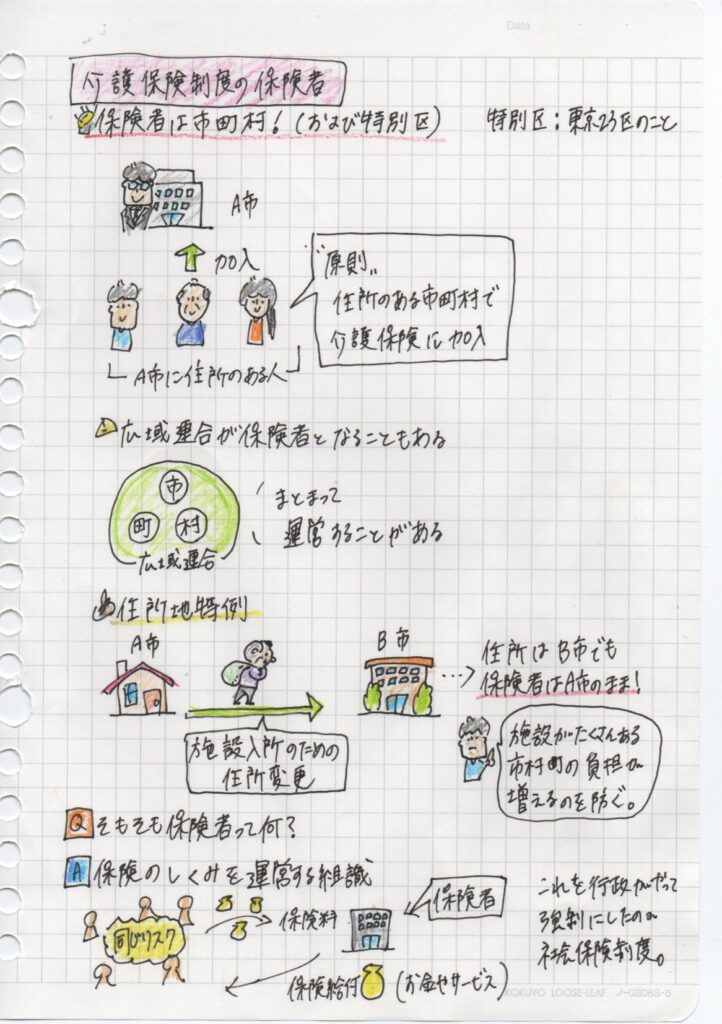 Date
介護保険制度の保険者
保険者は市町村!(および特別区)
特別区:東京23区のこと
A市
加入
"原則"
住所のある市町村で
介護保険に加入
A市に住所のある人
広域連合が保険者となることもある
市
町 村
広域連合
まとまって
運営することがある
住所地特例
A市
B市
住所はB市でも
保険者はA市のまま!
施設入所のための
住所変更
施設がたくさんある
市村町の負担が
増えるのを防ぐ。
Q そもそも保険者って何?
A 保険のしくみを運営する組識
同じリスク
保険料
保険者
保険給付
(お金やサービス)
これを行政がやって
強制にしたのが
社会保険制度。
KOKUYO LOOSE-LEAF ノ-G806S-5